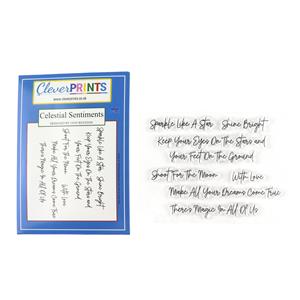 CleverPRINTS
Celestial Sentiments
Sparkle Like A Star Shine Bright
Keep Your Eyes On The Stars and
Your Feet On The Ground
Shoot For The Moon With Love
Make All Your Dreams Come True
There's Magic In All Of Us
Sparkle Like A Star Shine Bright
Keep Your Eyes On The Stars and
Your Feet On The Ground
Shoot For The Moon With Love
Make All Your Dreams Come True
There's Magic In All Of Us